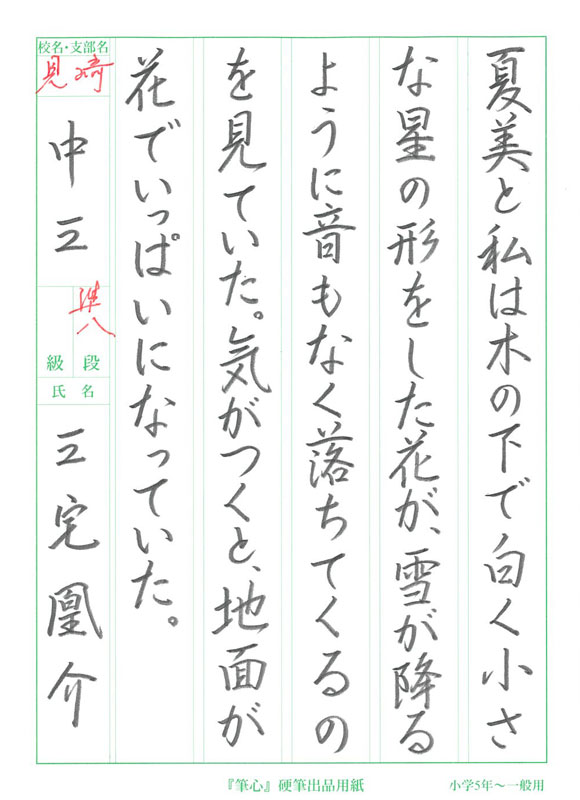 夏美と私は木の下で白く小さ
な星の形をした花が、雪が降る
ように音もなく落ちてくるの
を見ていた。気がつくと、地面が
花でいっぱいになっていた。
校名・支部名
見崎
中三
準八
級 段
氏名
三宅凰介
『筆心』硬筆出品用紙
小学5年〜一般用